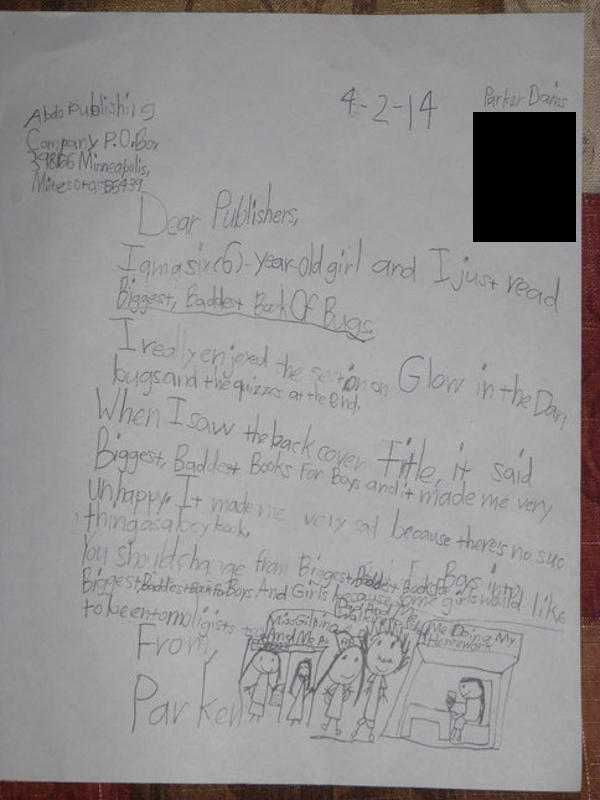 4-2-14
Parker Dains
Abdo Publishing
Company P.O. Box
398166 Minneapolis,
Minesota 55439
Dear Publishers,
I am a six (6)-year-old girl and I just read
Biggest, Baddest Book Of Bugs.
I really enjoyed the section on Glow in the Dark
bugs and the quizzes at the end.
When I saw the back cover title, it said
Biggest, Baddest Books For Boys and it made me very
unhappy. It made me very sad because there's no suc
thing as a boy book.
You should change from Biggest, Baddest Books For Boys into
Biggest, Baddest Books For Boys And Girls because some girls would like
to be entomoligists too.
From,
Parker
Miss Gilpine
And Me At
Dad And
Me Doing My
Homework